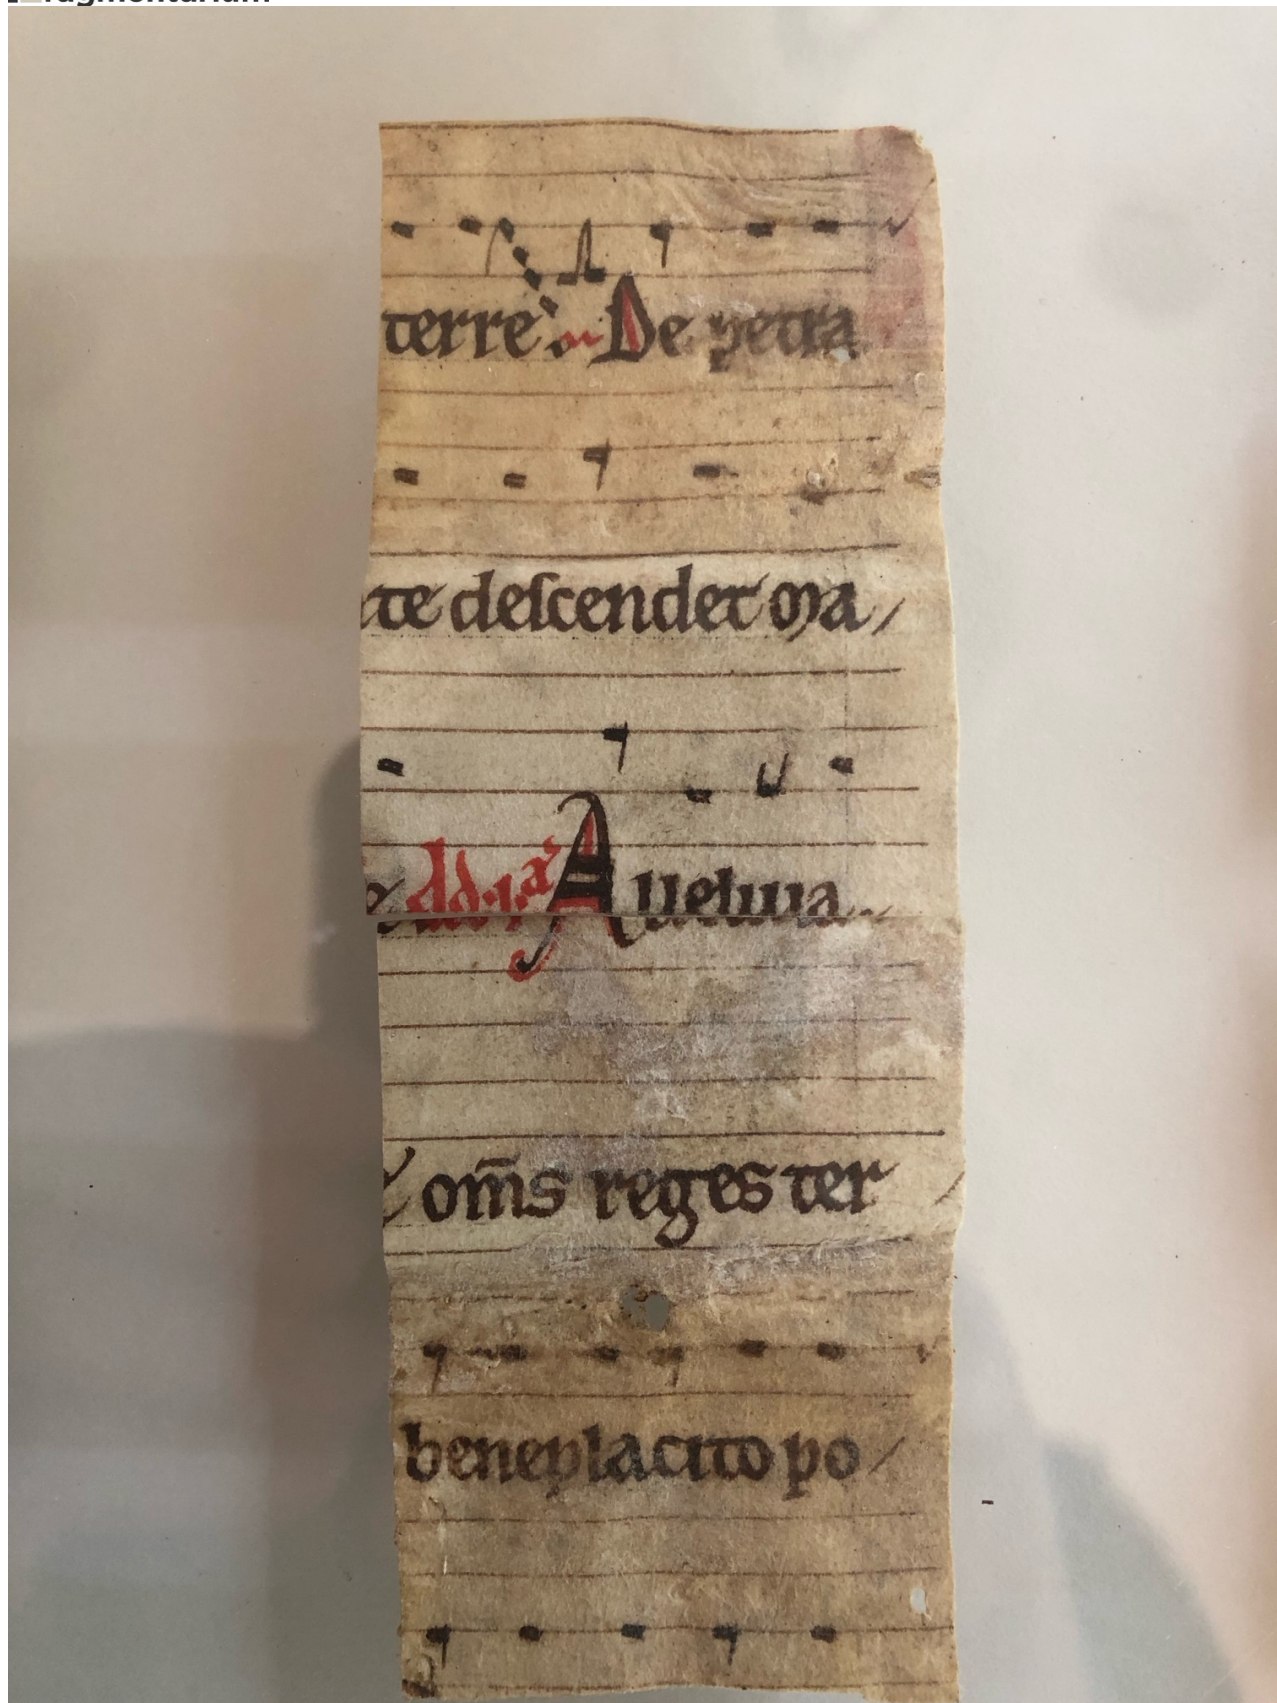 terre. De petra
te descendet ma
Alleluia
om̄s reges ter
beneplacito po